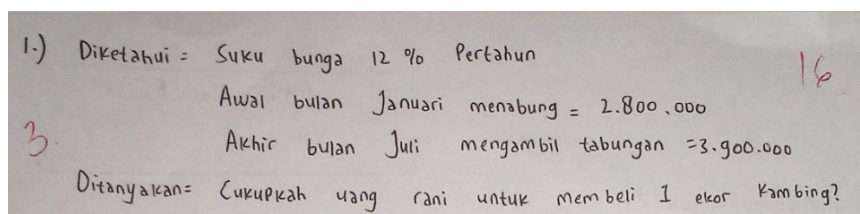 1.) Diketahui = Suku bunga 12 % Pertahun
16
Awal bulan Januari menabung = 2.800.000
3.
Akhir bulan Juli mengambil tabungan =3.900.000
Ditanyakan= Cukupkah uang rani untuk membeli 1 ekor Kambing?